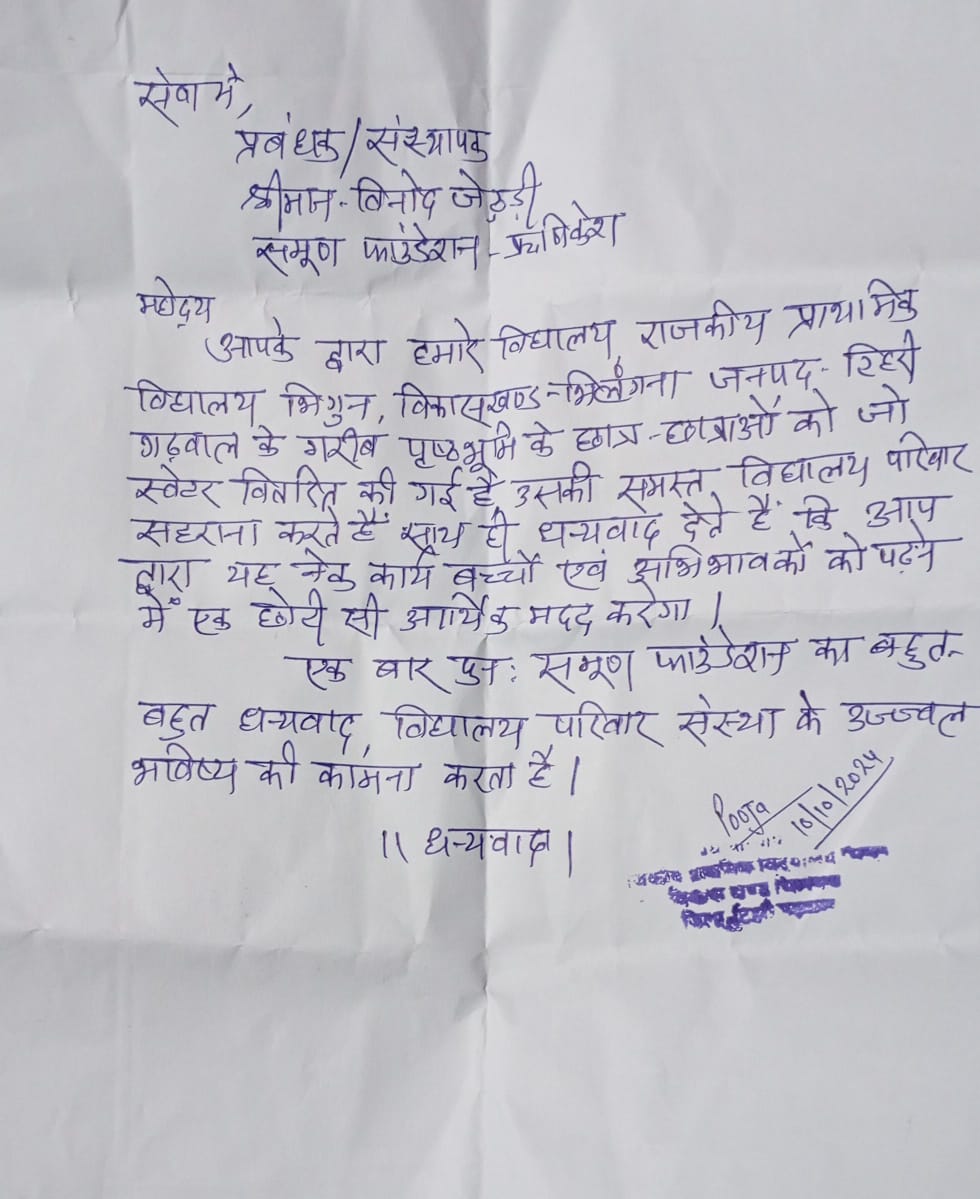 सेवा में,
प्रबंधक/संस्थापक
श्रीमान - विनोद जेठुड़ी
समूण फाउंडेशन - ऋषिकेश
महोदय
आपके द्वारा हमारे विद्यालय, राजकीय प्राथमिक
विद्यालय भिगुन, विकासखण्ड - भिलंगना जनपद - टिहरी
गढ़वाल के गरीब पृष्ठभूमि के छात्र - छात्राओं को जो
स्वेटर वितरित की गई है, उसकी समस्त विद्यालय परिवार
सहराना करते हैं साथ ही धन्यवाद देते हैं कि आप
द्वारा यह नेक कार्य बच्चों एवं अभिभावकों को पढ़ने
में एक छोटी सी आर्थिक मदद करेगा।
एक बार पुन: समूण फाउंडेशन का बहुत-
बहुत धन्यवाद, विद्यालय परिवार संस्था के उज्ज्वल
भविष्य की कामना करता है।
॥ धन्यवाद।
Pooja
10/10/2024